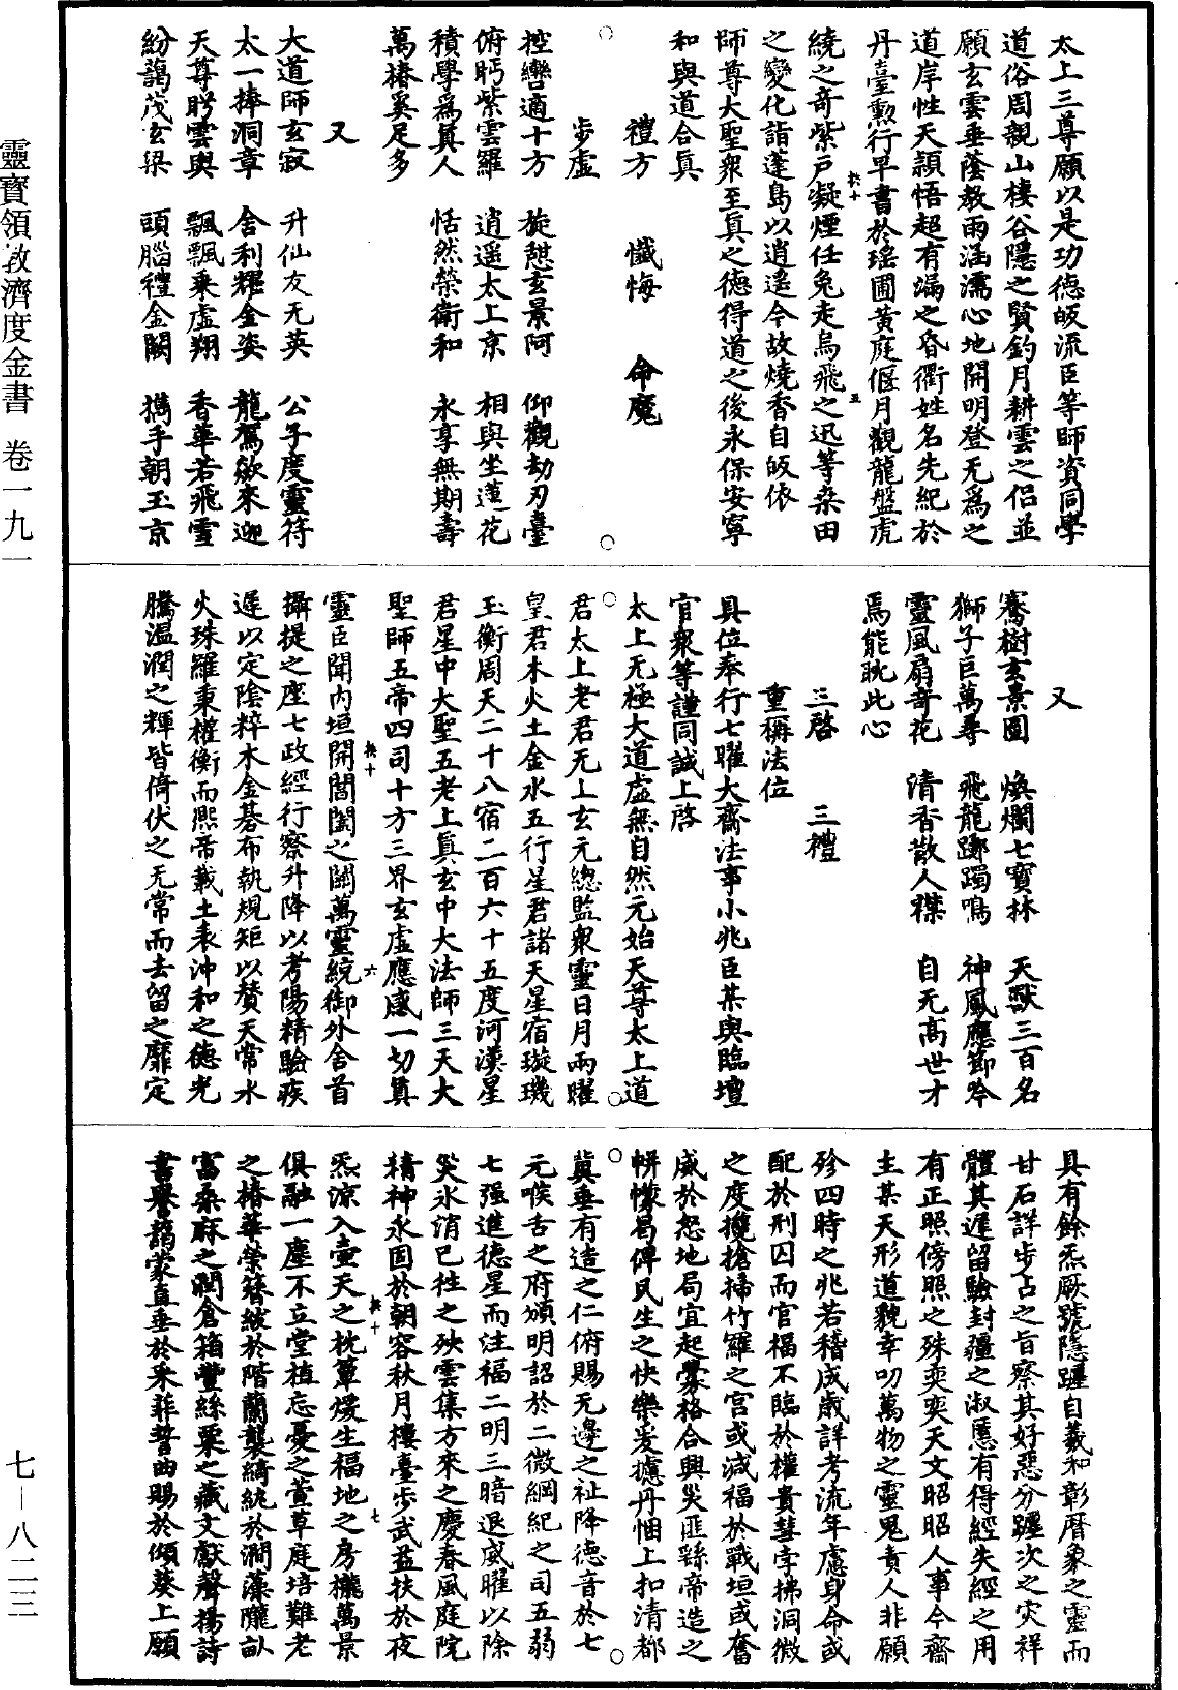 太上三尊願以是功德皈流臣等師資同學
道俗周親山棲谷隱之賢釣月耕雲之侣並
願玄雲垂蔭教雨涵濡心地開明登无為之
道岸性天穎悟超有漏之昏衢姓名先紀於
丹臺勲行早書於瑤圃黃庭偃月觀龍盤虎
繞之奇紫戸凝煙任兔走烏飛之迅等桑田
之變化詣蓬島以逍遙今故燒香自皈依
師尊大聖衆至真之德得道之後永保安寧
和與道合真
禮方　懺悔　命魔
步虛
控轡適十方　旋憩玄景阿　仰觀劫刃臺
俯眄紫雲羅　逍遥太上京　相與坐蓮花
積學為真人　恬然榮衛和　永享無期壽
萬椿奚足多
又
大道師玄寂　升仙友无英　公子度靈符
太一捧洞章　舍利耀金姿　龍駕欻來迎
天尊眄雲輿　飄飄乗虛翔　香華若飛雪
紛藹茂玄梁　頭腦禮金闕　携手朝玉京
又
騫樹玄景園　煥爛七寶林　天獸三百名
獅子巨萬尋　飛龍躑躅鳴　神鳳應節吟
靈風扇奇花　清香散人襟　自无高世才
焉能眺此心
三啓　三禮
重稱法位
具位奉行七曜大齋法事小兆臣某與臨壇
官衆等謹同誠上啓
太上无極大道虛無自然元始天尊太上道
君太上老君无上玄元總監衆靈日月兩曜
皇君木火土金水五行星君諸天星宿璇璣
玉衡周天二十八宿二百六十五度河漢星
君星中大聖五老上真玄中大法師三天大
聖師五帝四司十方三界玄虛應感一切真
靈臣聞内垣開閶闔之闢萬靈統御外舍首
攝提之座七政經行察升降以考陽精驗疾
遲以定陰粹木金棊布執規矩以贊天常水
火珠羅秉權衡而熙帝載土表沖和之德光
騰温潤之輝皆倚伏之无常而去留之靡定
具有餘炁厥號隱躔自羲和彰暦象之靈而
甘石詳步占之旨察其好惡分躔次之灾祥
體其遲留驗封疆之淑慝有得經失經之用
有正照傍照之殊奕奕天文昭昭人事今齋
主某天形道貌幸叨萬物之靈鬼責人非願
殄四時之兆若稽成歲詳考流年慮身命或
配於刑囚而官福不臨於權貴彗孛拂洞微
之度攙搶掃竹羅之宮或減福於戰垣或奮
威於怒地局宜起霧格合興灾匪繇帝造之
帡幪曷俾民生之快樂爰攄丹悃上扣清都
冀垂有造之仁俯賜无邊之祉降德音於七
元喉舌之府頒明詔於二微綱紀之司五弱
七强進德星而注福二明三暗退威曜以除
灾氷消已徃之殃雲集方來之慶春風庭院
精神永固於朝容秋月樓臺步武益扶於夜
炁涼入壷天之枕簟煖生福地之房櫳萬景
俱融一塵不立堂植忘憂之萱草庭培難老
之椿華榮簪紱於階蘭襲綺紈於澗藻隴畝
富桑麻之潤倉箱豐絲粟之藏文獻聲揚詩
書譽藹蒙直垂於采菲瞽曲賜於傾葵上願
靈寳領敎濟度金書　卷一九一
七—八二三